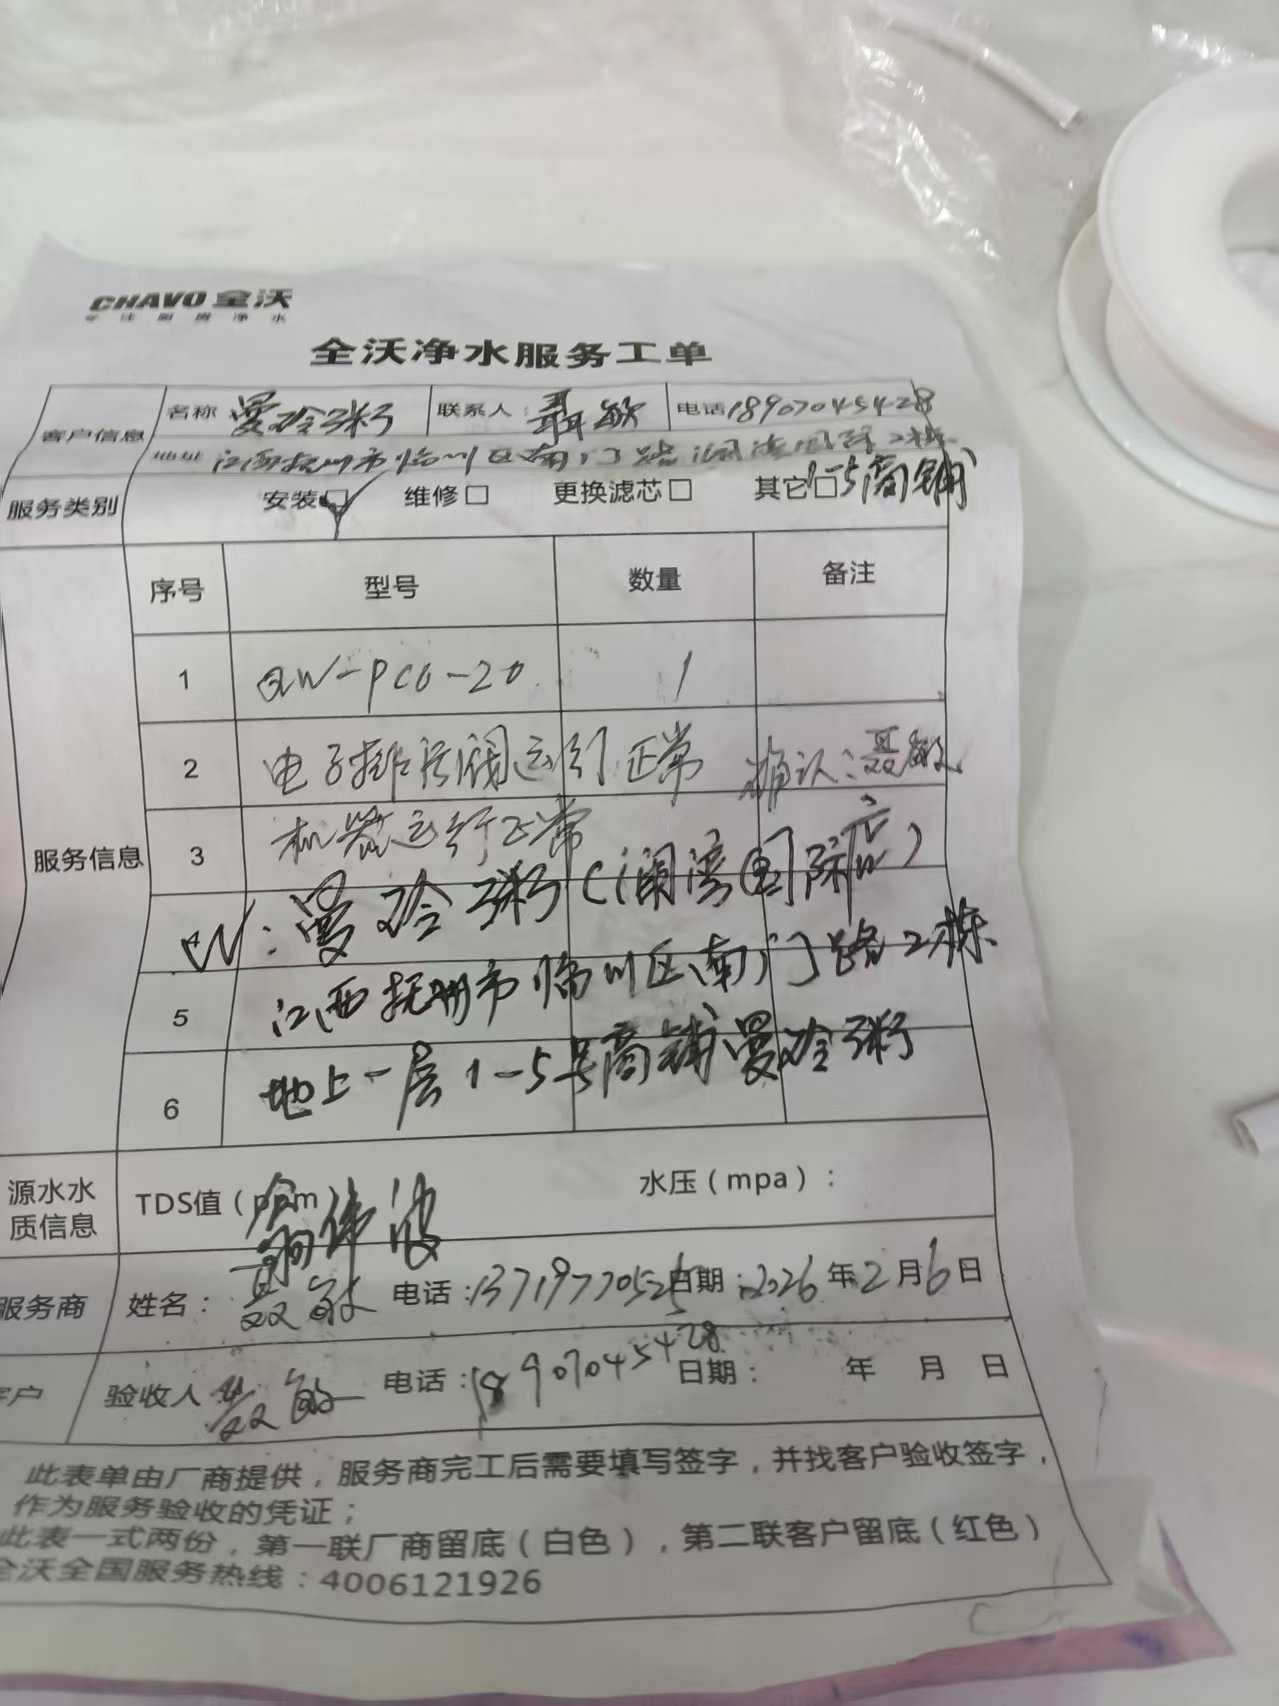 CHAVO 全沃
全沃净水服务工单
客户信息 名称 曼玲粥 联系人： 聂敏 电话 18907045428
地址 江西抚州市临川区南门路阅湾国际2栋
服务类别 安装☑ 维修□ 更换滤芯□ 其它□ 1-5商铺
序号 型号 数量 备注
1 QW-PC0-20 1
2 电子排污阀运行正常 确认：聂敏
服务信息 3 机器运行正常
曼玲粥（阅湾国际店）
5 江西抚州市临川区南门路2栋
6 地上一层1-5号商铺曼玲粥
源水水质信息 TDS值（ppm 水压（mpa）：
伟波
服务商 姓名： 聂敏 电话： 日期：2026年2月6日
户 验收人 聂敏 电话：18907045428 日期： 年 月 日
此表单由厂商提供，服务商完工后需要填写签字，并找客户验收签字，
作为服务验收的凭证；
此表一式两份，第一联厂商留底（白色），第二联客户留底（红色）
全沃全国服务热线：4006121926